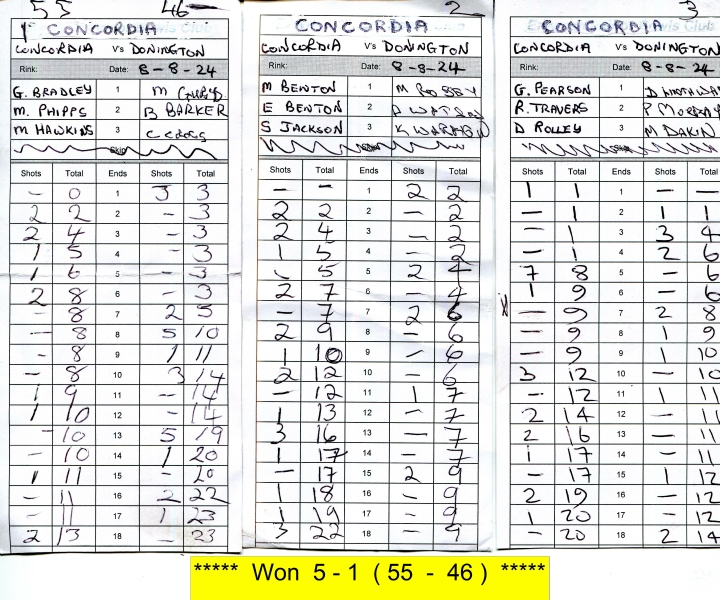 55 46
1 CONCORDIA
CONCORDIA vs DONINGTON
Rink: Date: 8-8-24
G. BRADLEY 1 M
M. PHIPPS 2 B BARKER
M HAWKINS 3 C
Skip
Shots Total Ends Shots Total
- 0 1 3 3
2 2 2 - 3
2 4 3 - 3
1 5 4 - 3
1 6 5 - 3
2 8 6 - 3
- 8 7 2 5
- 8 8 5 10
- 8 9 1 11
- 8 10 3 14
1 9 11 - 14
1 10 12 - 14
- 10 13 5 19
- 10 14 1 20
1 11 15 - 20
- 11 16 2 22
- 11 17 1 23
2 13 18 - 23
2
CONCORDIA
CONCORDIA vs DONINGTON
Rink: Date: 8-8-24
M BENTON 1 M
E BENTON 2 WATSON
S JACKSON 3 K
Shots Total Ends Shots Total
- - 1 2 2
2 2 2 - 2
2 4 3 - 2
1 5 4 - 2
- 5 5 2 4
2 7 6 - 4
- 7 7 2 6
2 9 8 - 6
1 10 9 - 6
2 12 10 - 6
- 12 11 1 7
1 13 12 - 7
3 16 13 - 7
1 17 14 - 7
- 17 15 2 9
1 18 16 - 9
1 19 17 - 9
3 22 18 - 9
3
CONCORDIA
CONCORDIA vs DONINGTON
Rink: Date: 8-8-24
G. PEARSON 1 D
R. TRAVERS 2 P
D ROLLEY 3 M DAKIN
Shots Total Ends Shots Total
1 1 1 - -
- 1 2 1 1
- 1 3 3 4
- 1 4 2 6
7 8 5 - 6
1 9 6 - 6
- 9 7 2 8
- 9 8 1 9
- 9 9 1 10
3 12 10 - 10
- 12 11 1 11
2 14 12 - 11
2 16 13 - 11
1 17 14 - 11
- 17 15 1 12
2 19 16 - 12
1 20 17 - 12
- 20 18 2 14
***** Won 5 - 1 ( 55 - 46 ) *****